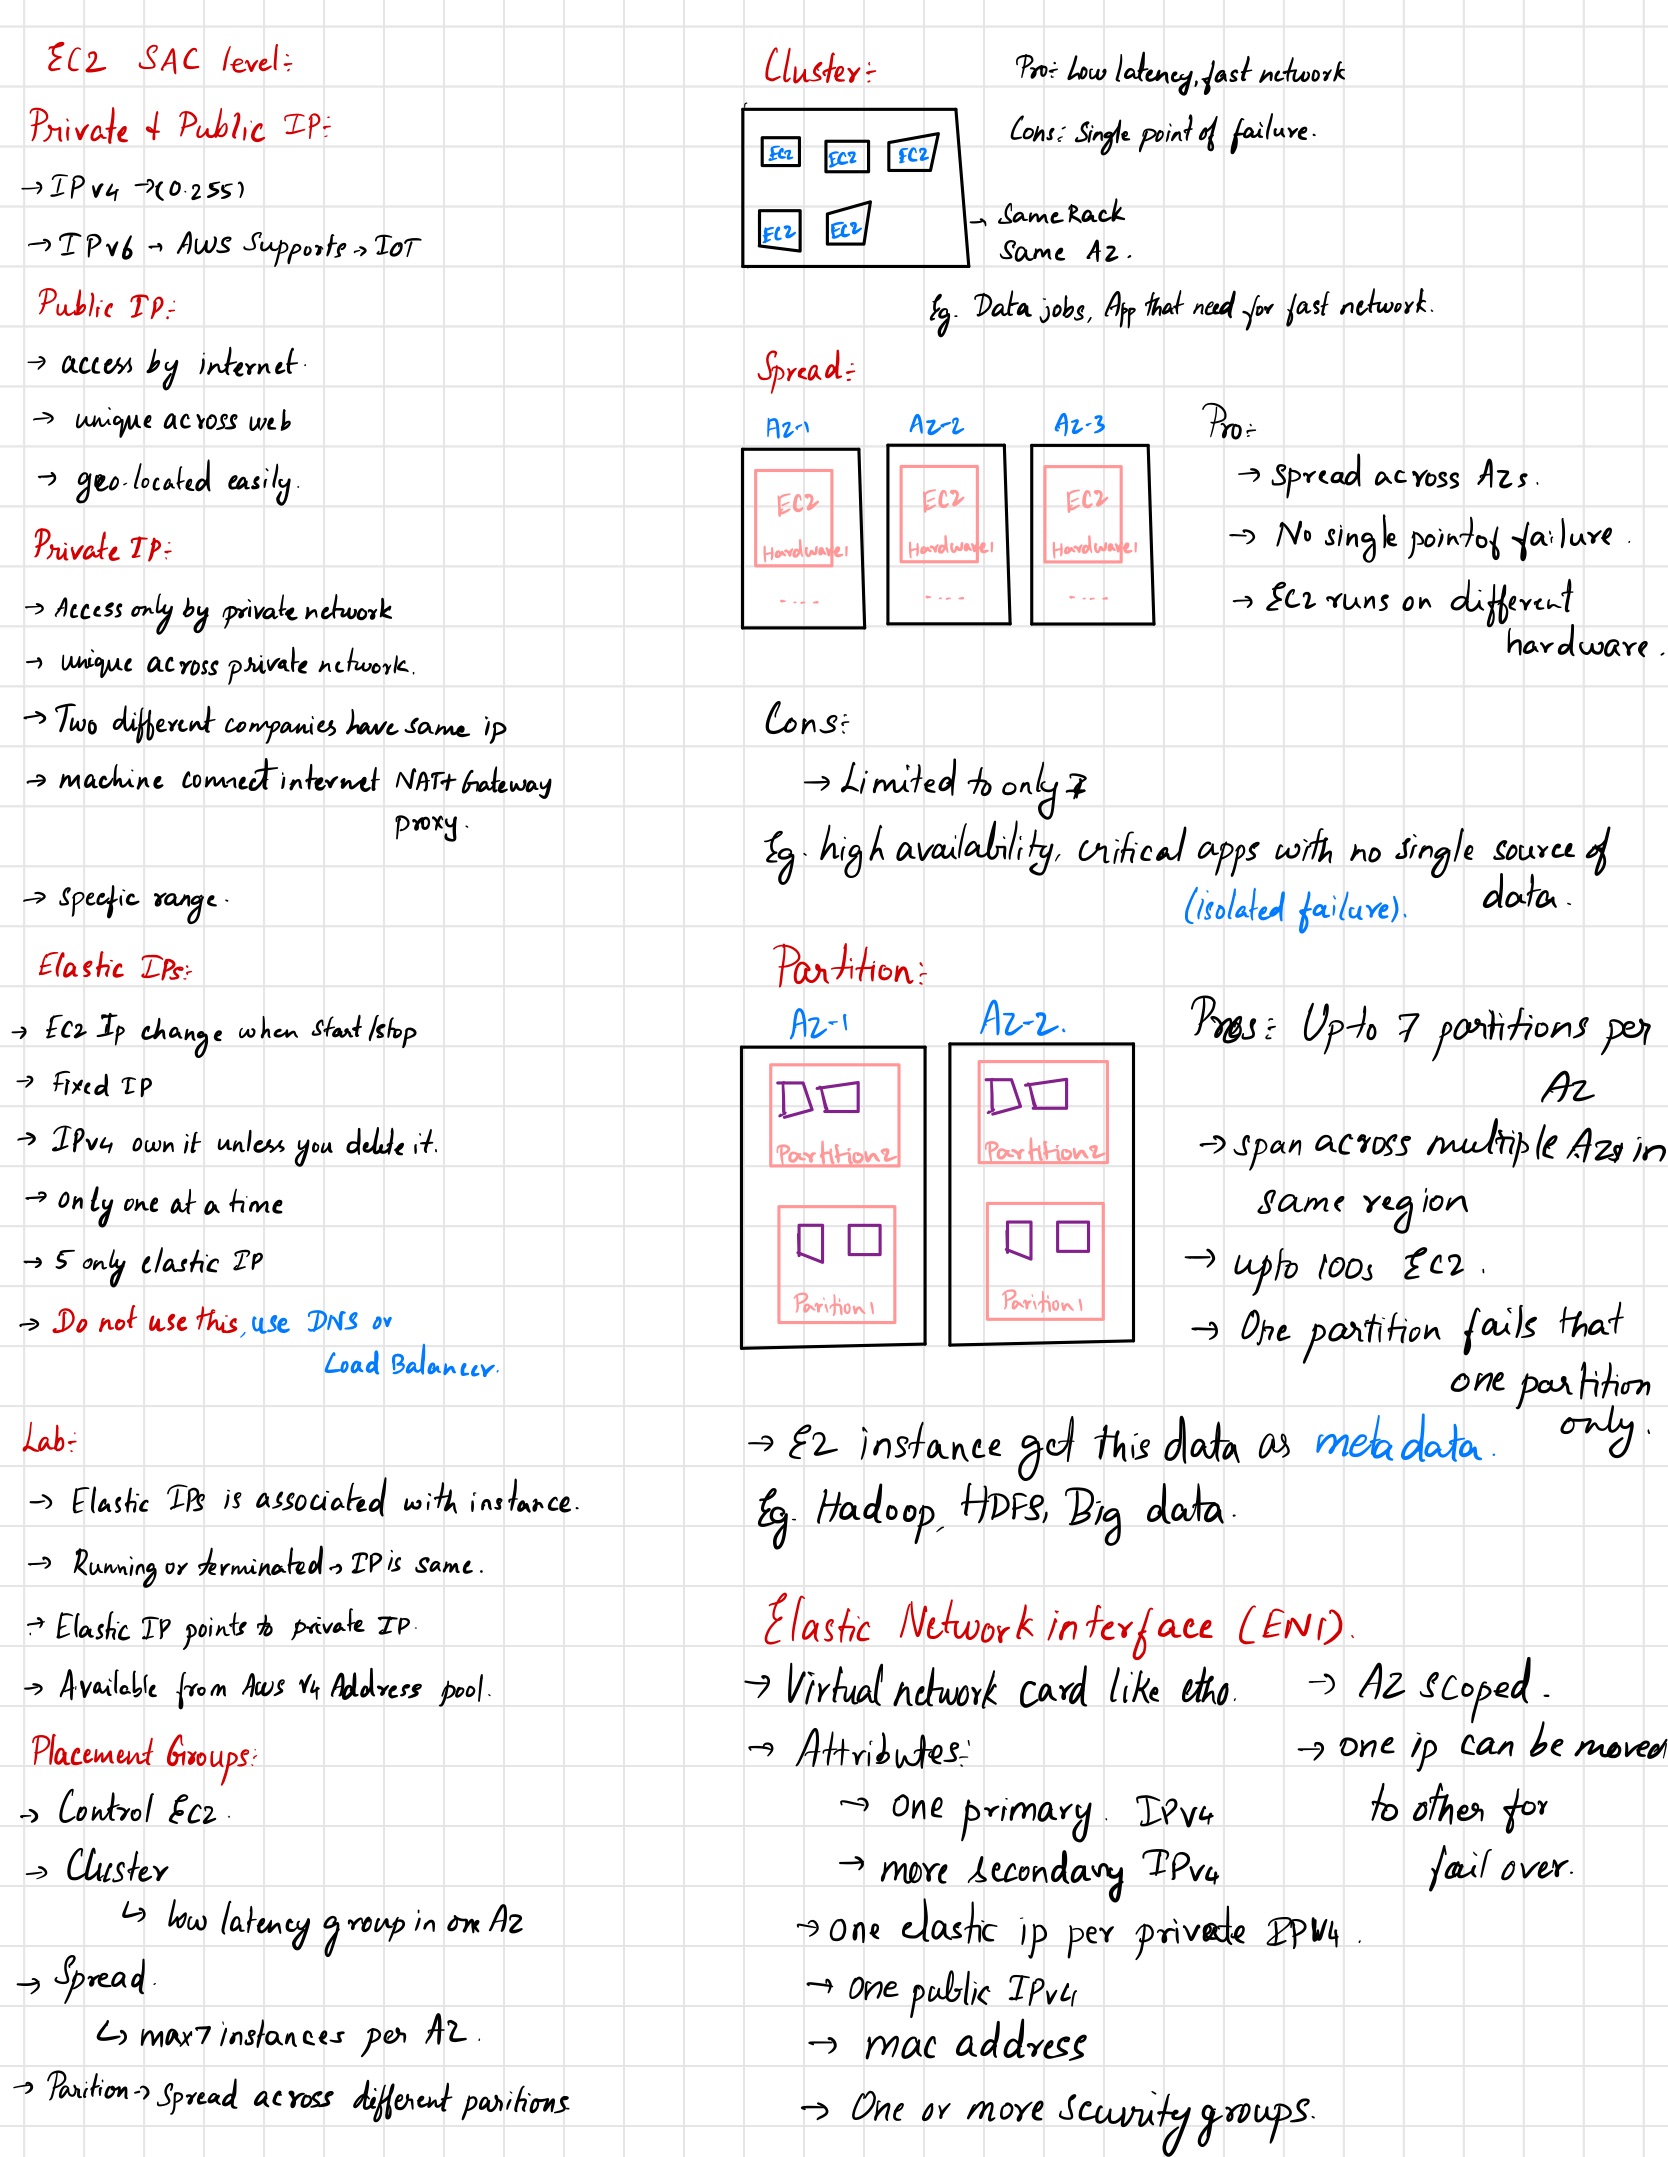 EC2 SAC level:-
Private & Public IP:-
→ IPv4 →(0.255)
→ IPv6 → AWS Supports → IOT
Public IP:-
→ access by internet.
→ unique across web
→ geo-located easily.
Private IP:-
→ Access only by private network
→ unique across private network.
→ Two different companies have same ip
→ machine connect internet NAT+ Gateway
proxy.
→ specfic range.
Elastic IPs:-
→ EC2 Ip change when start/stop
→ Fixed IP
→ IPv4 own it unless you delete it.
→ only one at a time
→ 5 only elastic IP
→ Do not use this, use DNS or
Load Balancer.
Lab:-
→ Elastic IPs is associated with instance.
→ Running or terminated → IP is same.
→ Elastic IP points to private IP.
→ Available from Aws V4 Address pool.
Placement Groups:-
→ Control EC2.
→ Cluster
↳ low latency group in one AZ
→ Spread.
↳ max 7 instances per AZ.
→ Parition → Spread across different paritions
Cluster:-
Pro:- Low latency, fast network
Cons: Single point of failure.
EC2 EC2 EC2
EC2 EC2
→ Same Rack
Same AZ.
Eg. Data jobs, App that need for fast network.
Spread:-
AZ-1 AZ-2 AZ-3
EC2 EC2 EC2
Hardware1 Hardware1 Hardware1
Pro:-
→ spread across AZs.
→ No single point of failure.
→ EC2 runs on different
hardware.
Cons:-
→ Limited to only 7
Eg. high availability, critical apps with no single source of
data.
(isolated failure).
Partition:-
AZ-1 AZ-2.
Partition2 Partition2
Parition1 Parition1
Pros:- Upto 7 partitions per
AZ
→ span across multiple AZs in
same region
→ upto 100s EC2.
→ One partition fails that
one partition
only.
→ E2 instance get this data as metadata.
Eg. Hadoop, HDFS, Big data.
Elastic Network interface (ENI).
→ Virtual network card like eth0.
→ Attributes:-
→ one primary. IPv4
→ more secondary IPv4
→ one elastic ip per private IPV4.
→ one public IPv4
→ mac address
→ One or more security groups.
→ AZ scoped.
→ one ip can be moved
to other for
fail over.